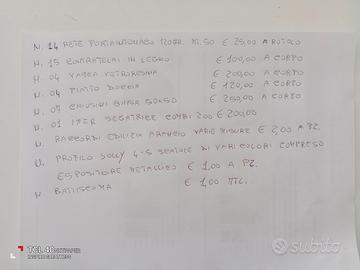 N. 14 RETE PORTAINTONACO 120GR. MT.50 € 25,00 A ROTOLO
N. 15 CONTROTELAI IN LEGNO € 100,00 A CORPO
N. 04 VASCA VETRORESINA € 200,00 A CORPO
N. 04 PIATTO DOCCIA € 120,00 A CORPO
N. 07 CHIUSINI GHISA 50X50 € 250,00 A CORPO
N. 01 IMER SEGATRICE COMBI 200 € 200,00
N. RACCORDI EDILIZIA ARANCIO VARIE MISURE € 2,00 A PZ.
N. PROFILO JOLLY 4-5 SERIALE DI VARI COLORI COMPRESO
ESPOSITORE METALLICO € 1,00 A PZ.
N. BATTISCOPA € 1,00 MTL.
TCL 40
INSPIRE GREATNESS
subito